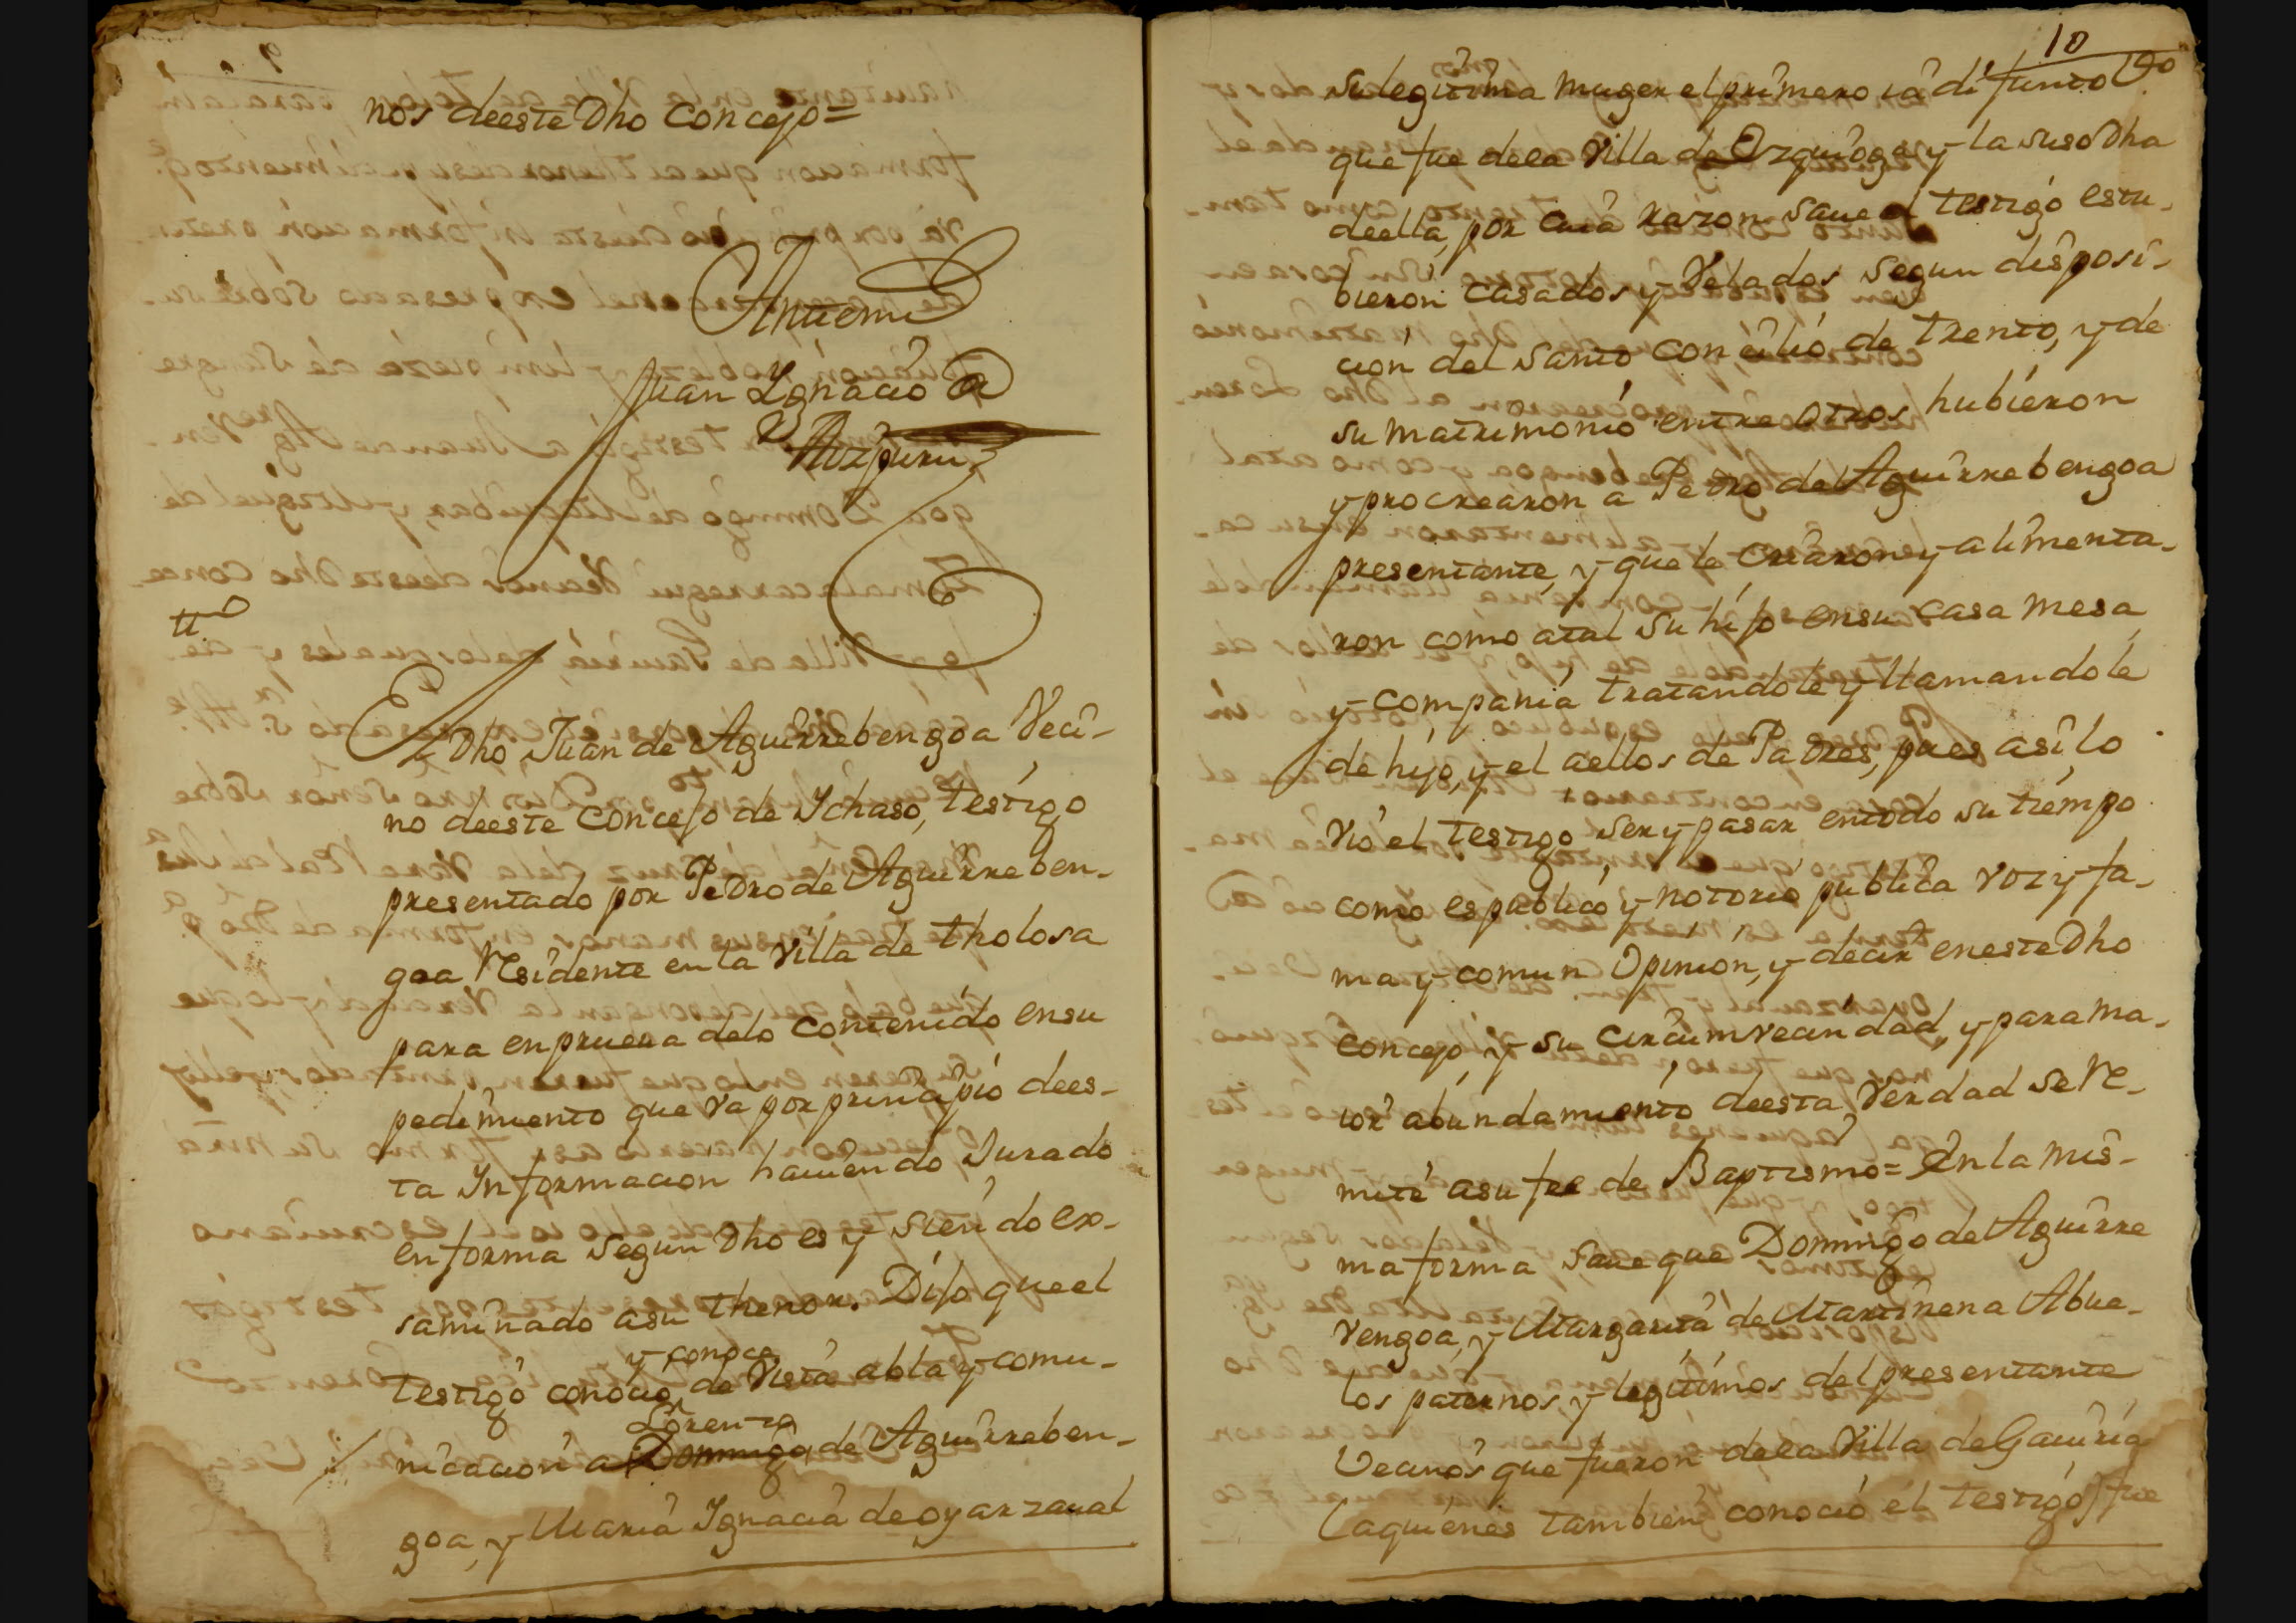 9
nos deeste Dho Concejo =
Antemi
Juan Ygnacio de
Aizpuru
tt.º
El Dho Juan de Aguirrebengoa Veci-
no deeste Concejo de Ichaso, testigo
presentado por Pedro de Aguirreben-
goa Residente en la Villa de tholosa
para enprueva delo Contenido ensu
pedimiento que va por principio dees-
ta Informacion haviendo Jurado
enforma segun Dho es y siendo ex-
saminado asu thenor. Dijo que el
y conoce
testigo conocio de Vista abla y comu-
Lorenzo
nicacion a Domingo de Aguirreben-
goa, y Maria Ignacia de oyarzaval
10
su legitima muger el primero ia difunto Vº
que fue dela Villa de Ezquioga y la susoDha
deella, por cuia razon save el testigo estu-
bieron casados y Velados segun disposi-
cion del santo concilio de trento, y de
su matrimonio entre otros hubieron
y procrearon a Pedro de Aguirrebengoa
presentante, y que le criaron y alimenta-
ron como atal su hijo ensu casa mesa
y compania tratandole y llamandole
de hijo, y el aellos de Padres, pues asi lo
vio el testigo ser y pasar entodo su tiempo
como es publico y notorio publica voz y fa-
ma y comun Opinion, y decir eneste Dho
concejo, y su circumvecindad, y para ma-
ior abundamiento deesta Verdad se Re-
mite asu fee de Baptismo = En la mis-
ma forma save que Domingo de Aguirre
Vengoa, y Margarita de Martinena Abue-
los paternos, y legitimos del presentante
Vecinos que fueron dela Villa de Gaviria
(aquienes tambien conocio el testigo) fue